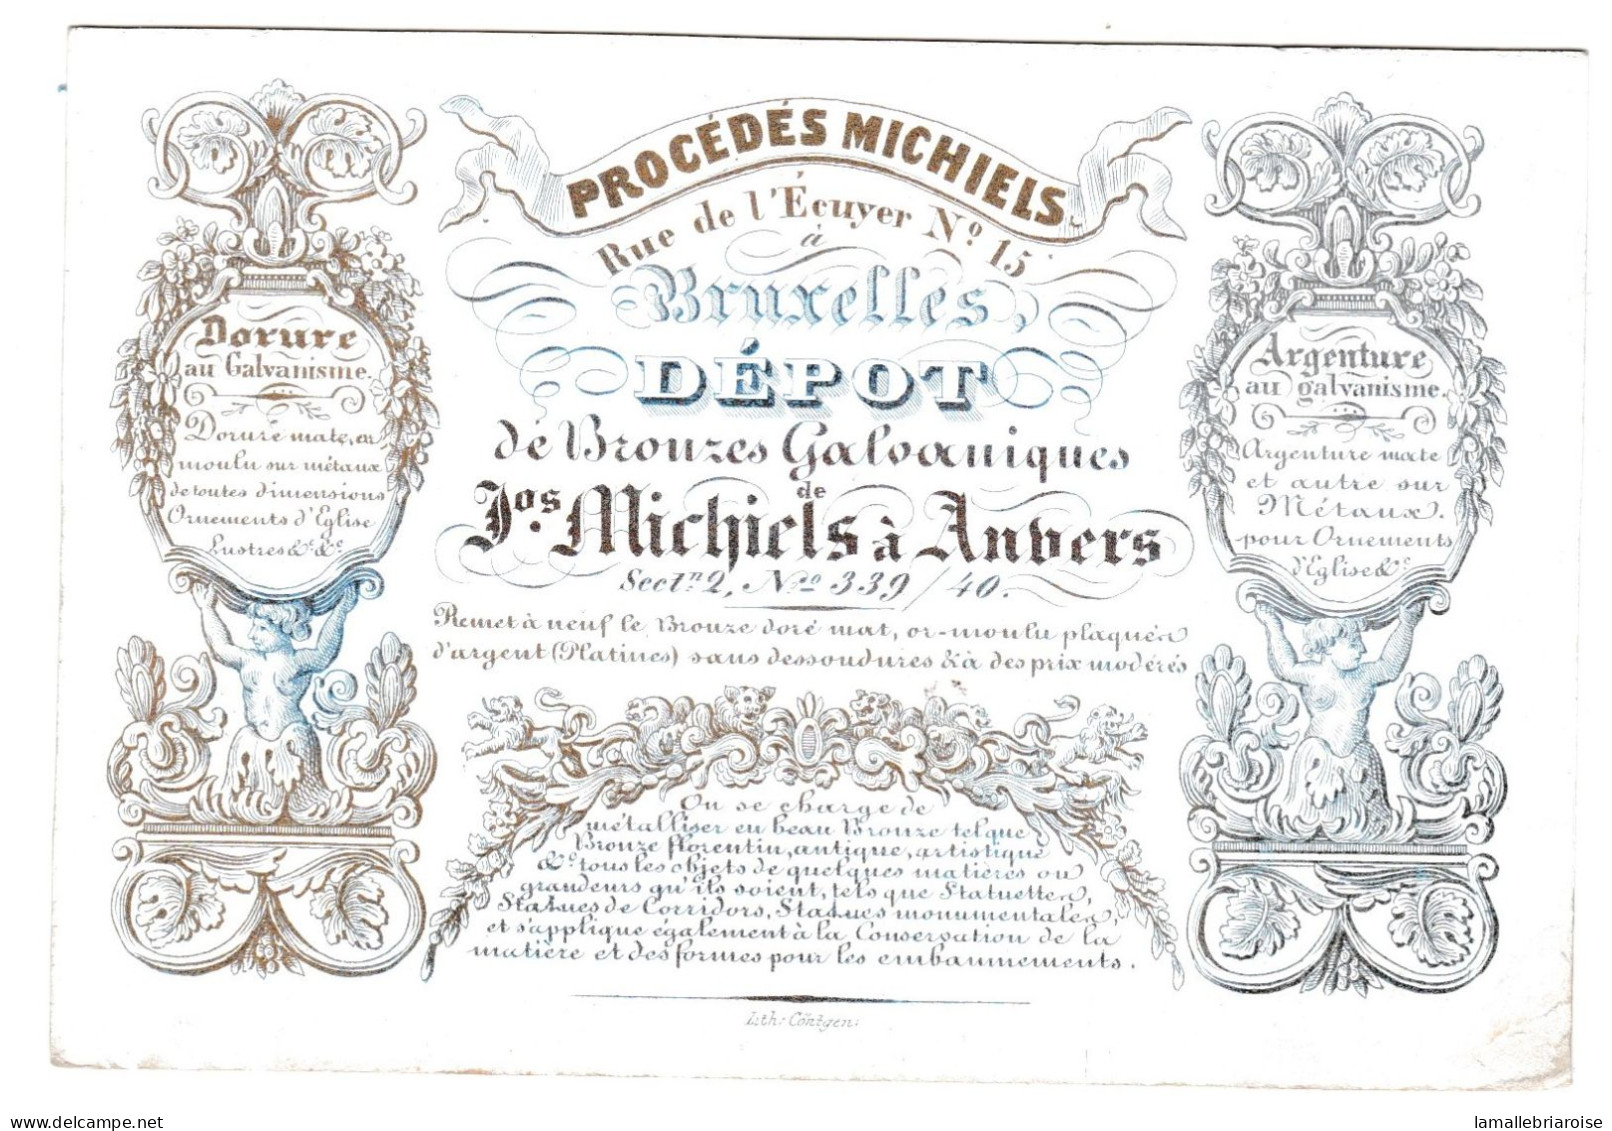 PROCÉDÉS MICHIELS
Rue de l'Écuyer Nº 15
à
Bruxelles,
DÉPOT
de Bronzes Galvaniques
de
Jos. Michiels à Anvers
Sectn. 2, Nro 339/40.
Remet à neuf le Bronze doré mat, or-moulu plaqués
d'argent (Platines) sans dessoudures & à des prix modérés
Dorure
au Galvanisme.
Dorure mate, or
moulu sur métaux
de toutes dimensions
Ornements d'Eglise
Lustres &c. &c.
Argenture
au galvanisme.
Argenture mate
et autre sur
Métaux.
pour Ornements
d'Eglise &c.
On se charge de
métalliser en beau Bronze tel que
Bronze florentin, antique, artistique
&c. tous les objets de quelques matières ou
grandeurs qu'ils soient, tels que Statuettes,
Statues de Corridors, Statues monumentales,
et s'applique également à la Conservation de la
matière et des formes pour les embaumements.
Lith: Cöntgen:
lamallebriaroise